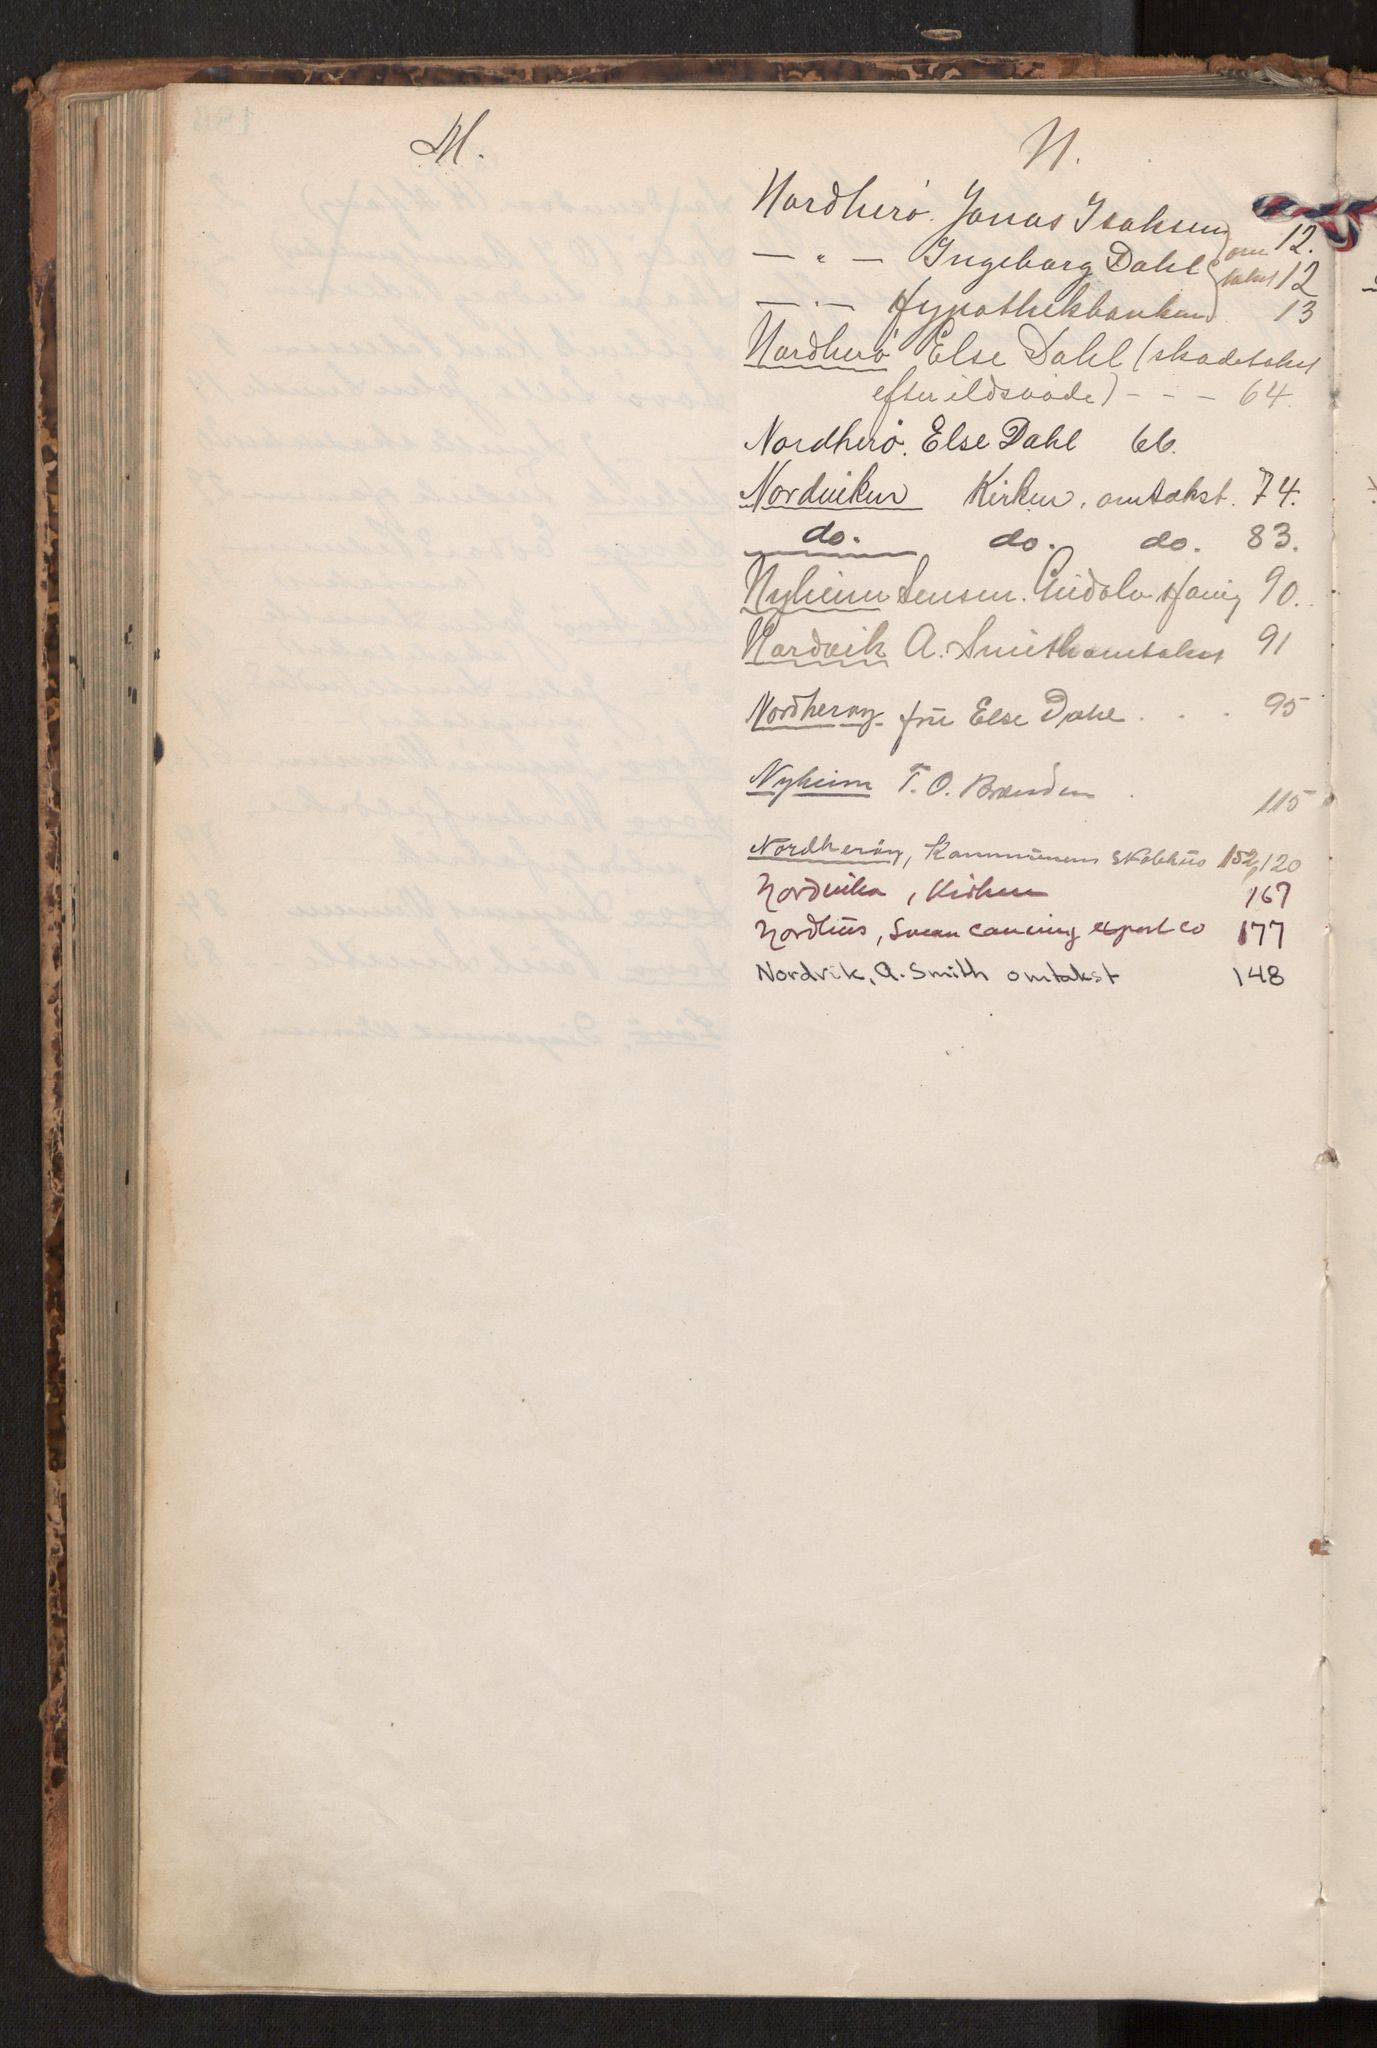 M.
N.
Nordherö. Jonas Isaksen 12.
— " — Ingeborg Dahl } omtakst 12
— " — Hypothekbanken 13
Nordherö Else Dahl (skadetakst
efter ildsvåde) - - - 64.
Nordherö. Else Dahl 66.
Nordviken Kirken, omtakst. 74.
do. do. do. 83.
Nyheim Havig 90.
Nordvik A. Smith omtakst 91
Nordherøy fru Else Dahl . . . 95
Nyheim T. O. Brænden . 115
Nordherøy, Kommunens Skolehus 152, 120
Nordvika, Kirken 167
Nordhus, canning export co 177
Nordvik, A. Smith omtakst 148